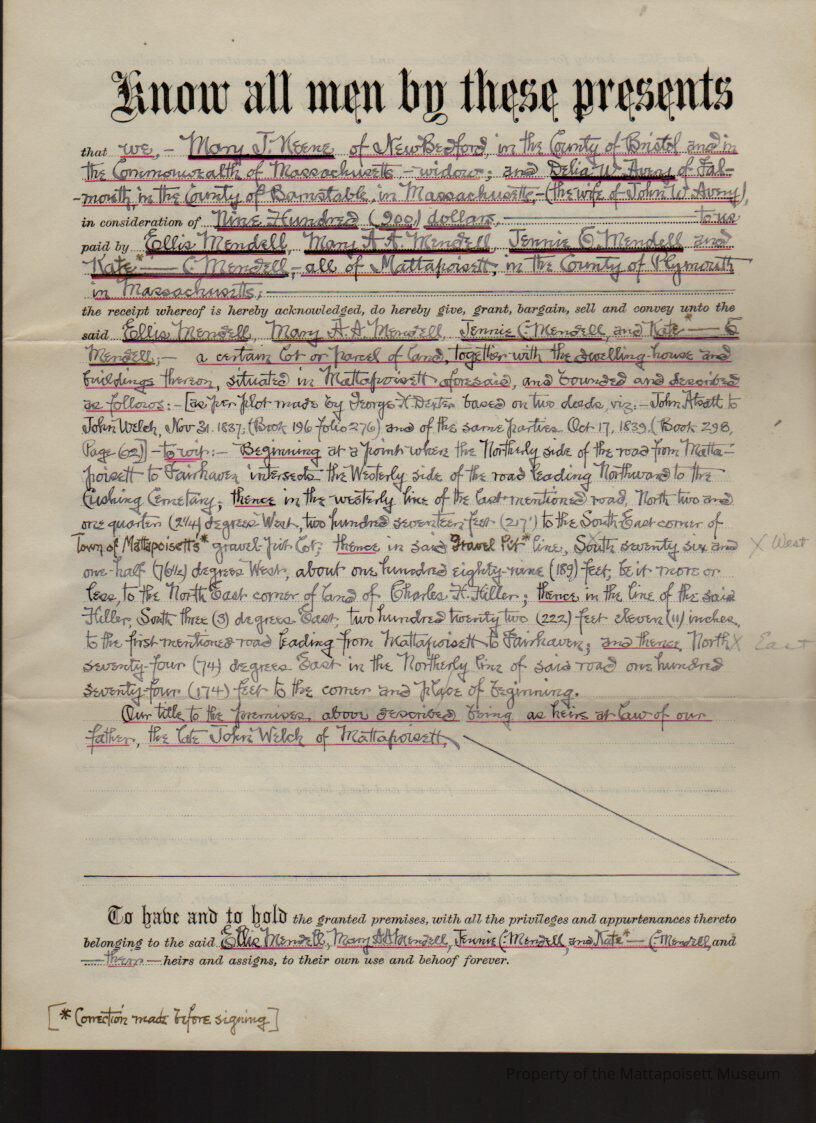 Know all men by these presents
that we, – Mary J. Keene of New Bedford, in the County of Bristol and in
the Commonwealth of Massachusetts – widow; and Delia W. Avery of Fal-
-mouth, in the County of Barnstable, in Massachusetts, – (the wife of John W. Avery),
in consideration of Nine Hundred (900) dollars, to us
paid by Ellis Mendell, Mary A. A. Mendell, Jennie C. Mendell and
Kate* — C. Mendell, – all of Mattapoisett, in the County of Plymouth
in Massachusetts;
the receipt whereof is hereby acknowledged, do hereby give, grant, bargain, sell and convey unto the
said Ellis Mendell, Mary A. A. Mendell, Jennie C. Mendell, and Kate* — C.
Mendell; – a certain lot or parcel of land, together with the dwelling-house and
buildings thereon, situated in Mattapoisett aforesaid, and bounded and described
as follows: – [as per plot made by George H. Dexter based on two deeds, viz: – John Atsatt to
John Welch, Nov 21. 1837; (Book 196 folio 276) and of the same parties Oct 17, 1839. (Book 298,
Page 62)] – to wit: – Beginning at a point where the Northerly side of the road from Matta-
poisett to Fairhaven intersects the Westerly side of the road leading Northward to the
Cushing Cemetary; thence in the westerly line of the last mentioned road, North two and
one quarter (2 1/4) degrees West, two hundred seventeen feet (217') to the South East corner of
Town of Mattapoisett's* gravel-pit lot; thence in said Gravel Pit* line, South seventy six and X West
one-half (76 1/2) degrees West, about one hundred eighty-nine (189) feet, be it more or
less, to the North East corner of land of Charles H. Hiller; thence in the line of the said
Hiller, South three (3) degrees East; two hundred twenty two (222) feet eleven (11) inches,
to the first mentioned road leading from Mattapoisett to Fairhaven; and thence, North X East
seventy-four (74) degrees East in the Northerly line of said road one hundred
seventy-four (174) feet to the corner and place of beginning.
Our title to the premises, above described being as heirs at law of our
father, the late John Welch of Mattapoisett,
To have and to hold the granted premises, with all the privileges and appurtenances thereto
belonging to the said Ellis Mendell, Mary A A Mendell, Jennie C. Mendell, and Kate* — C. Mendell, and
— their — heirs and assigns, to their own use and behoof forever.
[* Correction made before signing]
Property of the Mattapoisett Museum